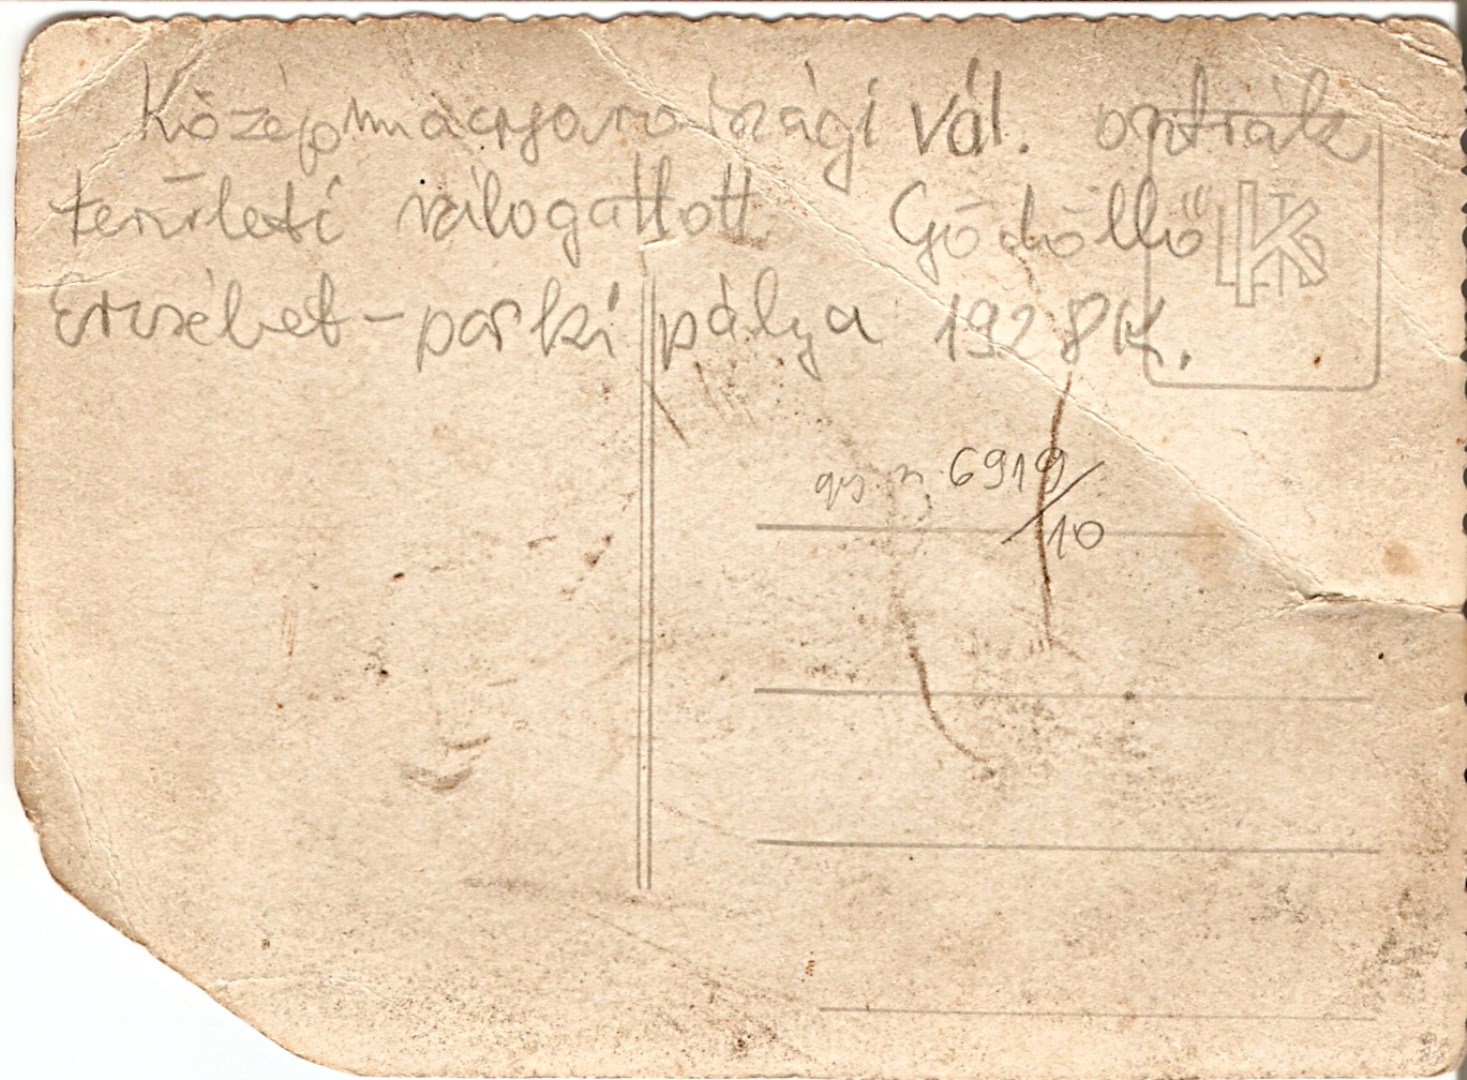 Középmagyarországi vál. osztrák
területi válogatott Gödöllő
Erzsébet-parki pálya 1928 K.
6919/10